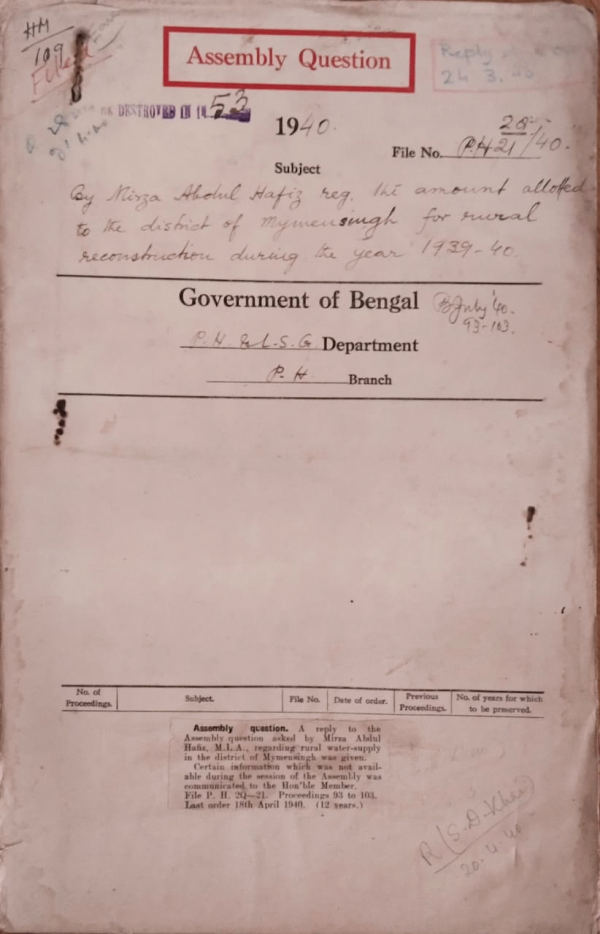 HM
109
Filed
Assembly Question
Reply
24 3. 40
DESTROYED IN 1953
1940.
File No. P.H 2Q-21/40.
Subject
By Mirza Abdul Hafiz reg. the amount allotted
to the district of Mymensingh for rural
reconstruction during the year 1939-40.
Government of Bengal
B July '40.
93-103.
P.H. & L.S.G Department
P.H Branch
No. of Proceedings.
Subject.
File No.
Date of order.
Previous Proceedings.
No. of years for which to be preserved.
Assembly question. A reply to the
Assembly question asked by Mirza Abdul
Hafiz, M.L.A., regarding rural water-supply
in the district of Mymensingh was given.
Certain information which was not avail-
able during the session of the Assembly was
communicated to the Hon'ble Member.
File P. H. 2Q—21. Proceedings 93 to 103.
Last order 18th April 1940. (12 years.)
R (S.A. Khan)
20.4.40